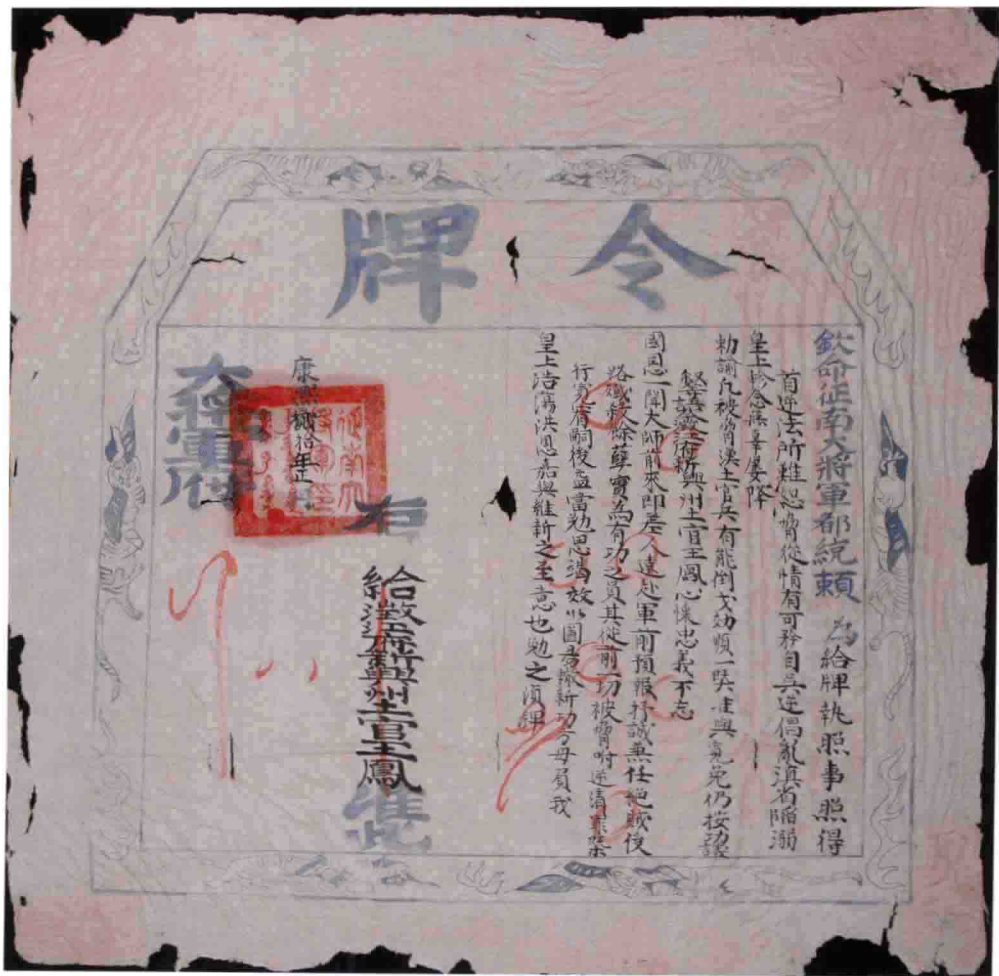 令牌
欽命征南大將軍都統賴 為給牌執照事照得
首逆法所難恕脅從情有可矜自吳逆倡亂滇省陷溺
皇上軫念無辜屢降
勅諭凡被脅漢土官兵有能倒戈効順一槩准與寬免仍按功議
澂江府新興州土官王鳳心懷忠義不忘
國恩一聞大師前來即差人遠赴軍前預報抒誠兼任絕賊後
路 餘孽實為有功之員其從前一切被脅附逆情 槩
行寬宥嗣後益當勉思竭效以圖 新功 毋負我
皇上浩蕩洪恩嘉與維新之至意也勉之須牌
右
給澂江府新興州土官王鳳 准此
康熙貳拾年正
大將軍府